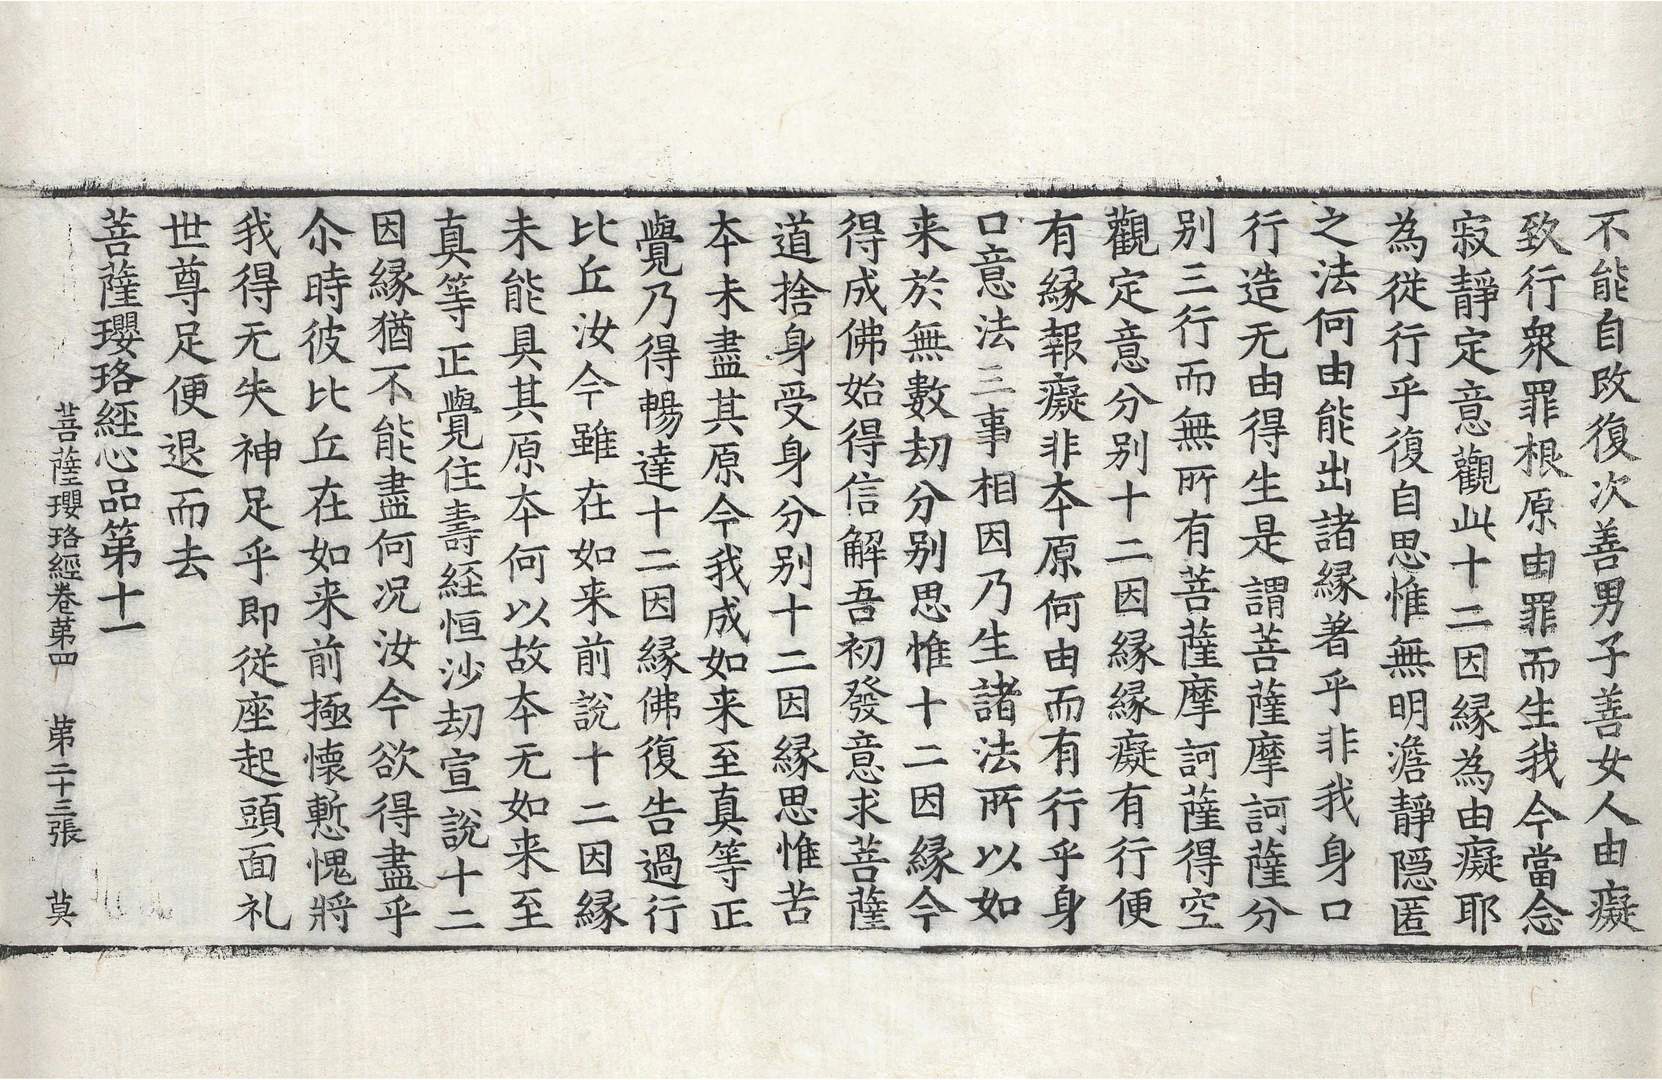 不能自改復次善男子善女人由癡
致行衆罪根原由罪而生我今當念
寂靜定意觀此十二因縁為由癡耶
為從行乎復自思惟無明澹靜隱匿
之法何由能出諸縁著乎非我身口
行造无由得生是謂菩薩摩訶薩分
别三行而無所有菩薩摩訶薩得空
觀定意分别十二因縁縁癡有行便
有縁報癡非夲原何由而有行乎身
口意法三事相因乃生諸法所以如
来於無數劫分别思惟十二因縁今
得成佛始得信解吾初發意求菩薩
道捨身受身分别十二因縁思惟苦
夲未盡其原今我成如来至真等正
覺乃得暢達十二因縁佛復告過行
比丘汝今雖在如来前説十二因縁
未能具其原夲何以故夲无如来至
真等正覺住壽経恒沙劫宣說十二
因縁猶不能盡何况汝今欲得盡乎
尒時彼比丘在如来前極懐慙愧將
我得无失神足乎即從座起頭面礼
世尊足便退而去
菩薩瓔珞経心品第十一
菩薩瓔珞經卷苐四 苐二十三張 莫